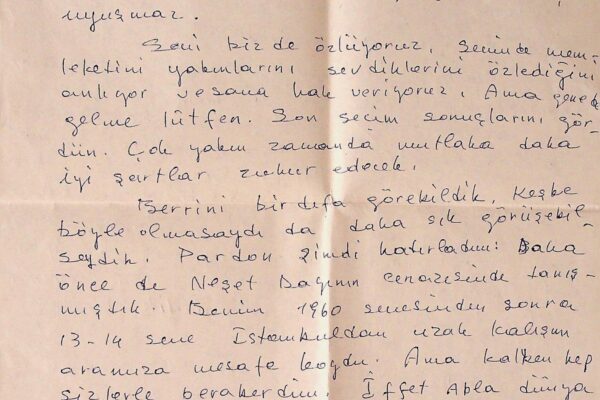 uyuşmaz.
Seni biz de özlüyoruz, seninde mem-
leketini yakınlarını sevdiklerini özlediğini
anlıyor ve sana hak veriyoruz. Ama gene de
gelme lütfen. Son seçim sonuçlarını gör-
dün. Çok yakın zamanda mutlaka daha
iyi şartlar zuhur edecek.
Berrini bir defa görebildik, keşke
böyle olmasaydı da daha sık görüşebil-
seydik. Pardon şimdi hatırladım: Daha
önce de Neşet Dayının cenazesinde tanış-
mıştık. Benim 1960 senesinden sonra
13-14 sene İstanbuldan uzak kalışım
aramıza mesafe koydu. Ama kalben hep
sizlerle beraberdim. İffet Abla dünya